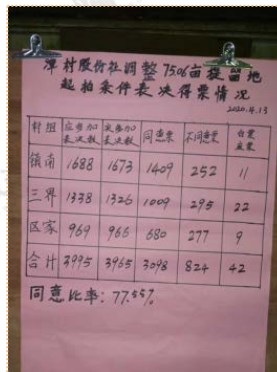 潭村股份社调整75.06亩投留地
起拍条件表决得票情况
2020.4.13
村组 应参加表决数 实参加表决数 同意票 不同意票 白票废票
镇南 1688 1673 1409 252 11
三界 1338 1326 1009 295 22
区家 969 966 680 277 9
合计 3995 3965 3098 824 42
同意比率:77.55%